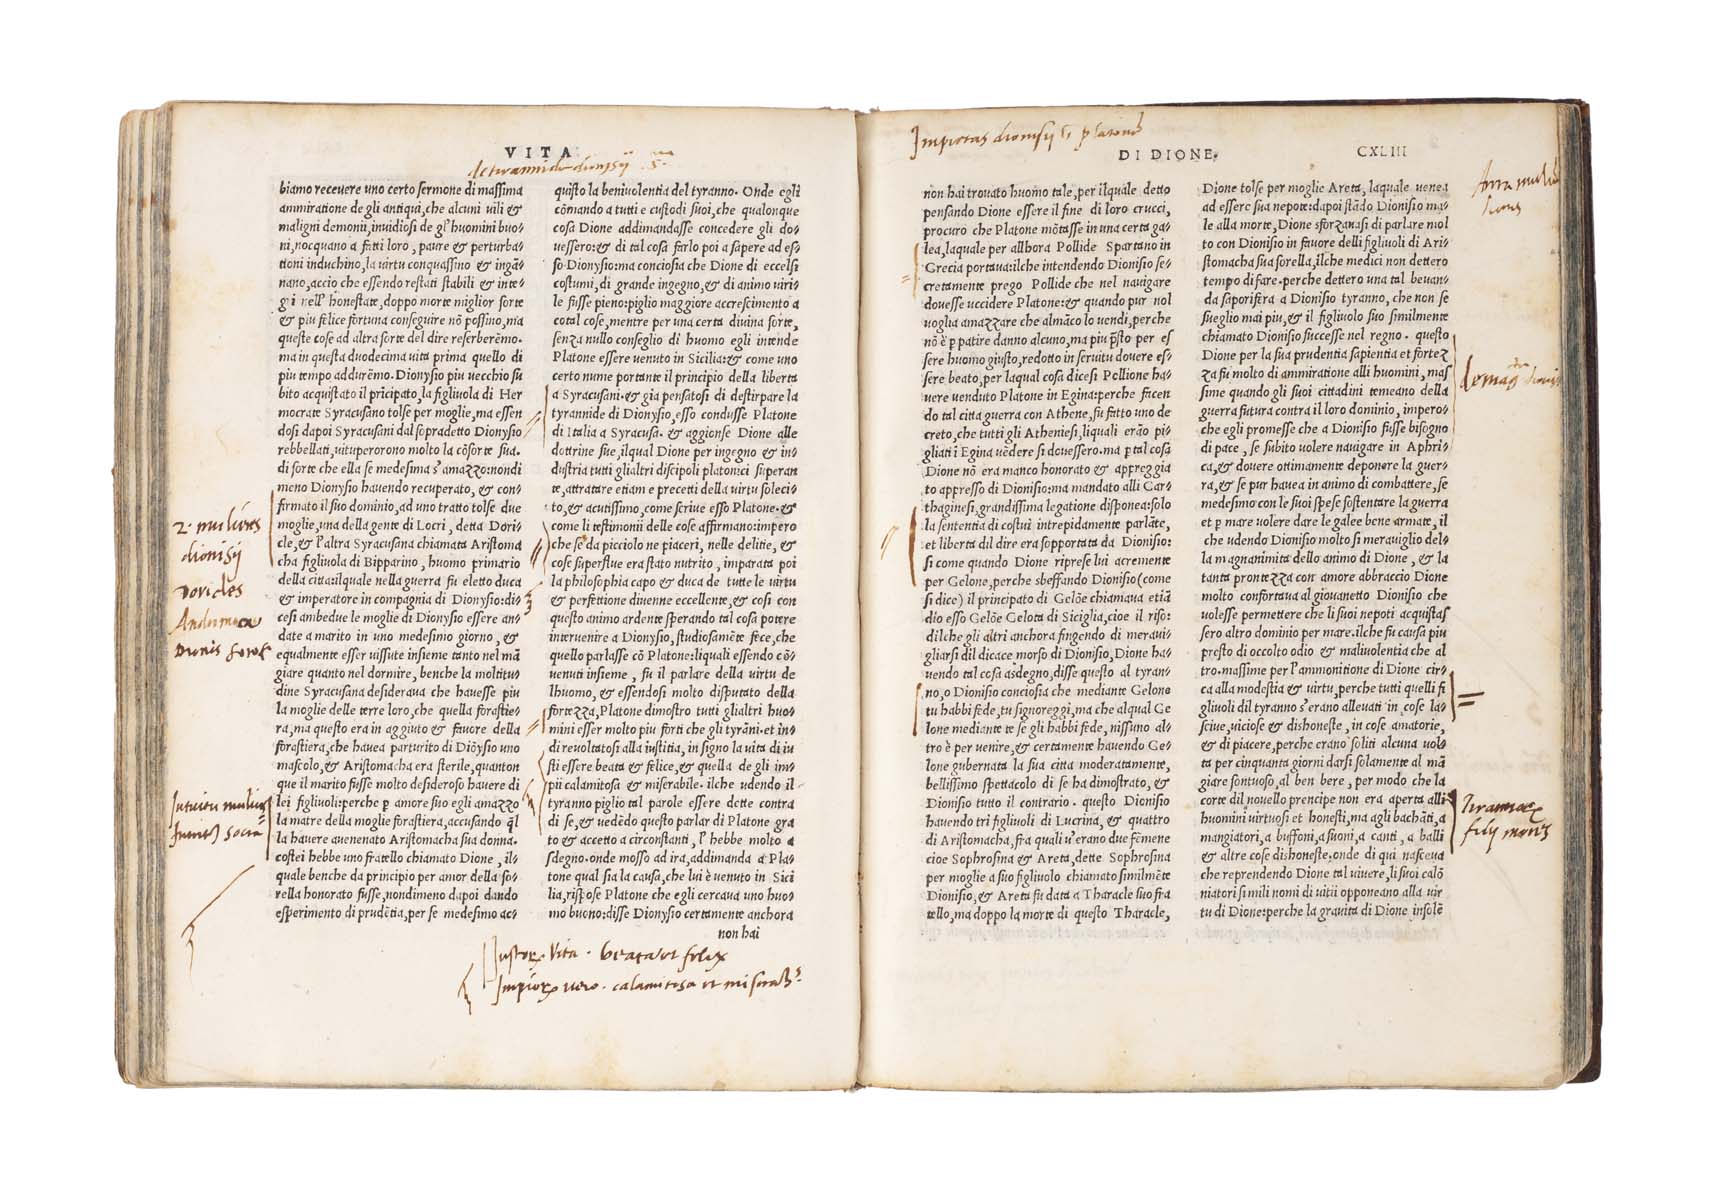 VITA
de tirannide dionisij
biamo recevere uno certo sermone di massima
ammiratione de gli antiqui, che alcuni uili &
maligni demonii, inuidiosi de gl'huomini buo-
ni, nocquano a fatti loro, paure & perturba-
tioni induchino, la uirtu conquassino & ingā-
nano, accio che essendo restati stabili & inte-
gri nell'honestate, doppo morte miglior sorte
& piu felice fortuna conseguire nō possino, ma
queste cose ad altra sorte del dire reserberēmo.
ma in questa duodecima uita prima quello di
piu tempo addurēmo. Dionysio piu uecchio su
bito acquistato il prīcipato, la figliuola di Her
mocrate Syracusano tolse per moglie, ma essen
dosi dapoi Syracusani dal sopradetto Dionysio
rebbellati, uituperorono molto la cōsorte sua.
di sorte che ella se medesima s'amazzo: nondi
meno Dionysio havendo recuperato, & con-
firmato il suo dominio, ad uno tratto tolse due
moglie, una della gente di Locri, detta Dori-
cle, & l'altra Syracusana chiamata Aristoma
cha figliuola di Bipparino, huomo primario
della citta: ilquale nella guerra fu eletto duca
& imperatore in compagnia di Dionysio: di-
cesi ambedue le moglie di Dionysio essere an-
date a marito in uno medesimo giorno, &
equalmente esser uissute insieme tanto nel mā
giare quanto nel dormire, benche la moltitu-
dine Syracusana desideraua che havesse piu
la moglie delle terre loro, che quella forastie-
ra, ma questo era in aggiuto & fauore della
forastiera, che hauea parturito di Diōysio uno
mascolo, & Aristomacha era sterile, quanton
que il marito fusse molto desideroso havere di
lei figliuoli: perche p amore suo egli amazzo
la matre della moglie forastiera, accusando q̄l
la havere auenenato Aristomacha sua donna.
costei hebbe uno fratello chiamato Dione, il-
quale benche da principio per amor della so-
rella honorato fusse, nondimeno dapoi dando
esperimento di prudētia, per se medesimo ac-
2. mulieres
dionisij
Doricles
quisto la beniuolentia del tyranno. Onde egli
cōmando a tutti e custodi suoi, che qualonque
cosa Dione addimandasse concedere gli do-
uessero: & di tal cosa farlo poi a sapere ad es-
so Dionysio: ma conciosia che Dione di eccelsi
costumi, di grande ingegno, & di animo uiri-
le fusse pieno: piglio maggiore accrescimento a
cotal cose, mentre per una certa divina sorte,
senza nullo conseglio di huomo egli intende
Platone essere venuto in Sicilia: & come uno
certo nume portante il principio della liberta
a Syracusani. & gia pensatosi di destirpare la
tyrannide di Dionysio, esso condusse Platone
di Italia a Syracusa. & aggionse Dione alle
dottrine sue, ilqual Dione per ingegno & in-
dustria tutti glialtri discipoli platonici superan
te, attrattare etiam e precetti della virtu soleci-
to, & acutissimo, come scriue esso Platone. &
come li testimonii delle cose affirmano: impero
che se da picciolo ne piaceri, nelle delitie, &
cose superflue era stato nutrito, imparata poi
la philosophia capo & duca de tutte le uirtu
& perfettione diuenne eccellente, & cosi con
questo animo ardente sperando tal cosa potere
intervenire a Dionysio, studiosamēte fece, che
quello parlasse cō Platone: liquali essendo cō-
uenuti insieme, fu il parlare della virtu de
lhuomo, & essendosi molto disputato della
fortezza, Platone dimostro tutti glialtri huo-
mini esser molto piu forti che gli tyrāni. et in-
di reuoltatosi alla iustitia, in signo la uita di iu
sti essere beata & felice, & quella de gli im-
pii calamitosa & miserabile. ilche udendo il
tyranno piglio tal parole essere dette contra
di se, & vedēdo questo par di Platone gra
to & accetto a circonstanti, l'hebbe molto a
sdegno. onde mosso ad ira, addimanda a Pla-
tone qual sia la causa, che lui è venuto in Sici
lia, rispose Platone che egli cercaua uno huo-
mo buono: disse Dionysio certamente anchora
non hai
Iustor. vita. beata et felix
Impior. vero. calamitosa et miserab.
Impietas dionisij in platonē
DI DIONE.
CXLIII
non hai trouato huomo tale, per ilquale detto
pensando Dione essere il fine di loro crucci,
procuro che Platone mōtasse in una certa ga-
lea, laquale per allhora Pollide Spartano in
Grecia portaua: ilche intendendo Dionisio se-
cretamente prego Pollide che nel navigare
douesse uccidere Platone: & quando pur nol
uoglia amazzare che almāco lo vendi, perche
nō è p patire danno alcuno, ma piu p̄sto per es
sere huomo giusto, redotto in seruitu douere es-
sere beato, per laqual cosa dicesi Pollione ha-
uere venduto Platone in Egina: perche facen
do tal citta guerra con Athene, fu fatto uno de
creto, che tutti gli Atheniesi, liquali erāo pi-
gliati ī Egina uēdere si douessero. ma p tal cosa
Dione nō era manco honorato & appreggia
to appresso di Dionisio: ma mandato alli Car-
thaginesi, grandissima legatione disponea: solo
la sententia di costui intrepidamente parlāte,
et liberta dil dire era sopportata da Dionisio:
si come quando Dione riprese lui acremente
per Gelone, perche sbeffando Dionisio (come
si dice) il principato di Gelōe chiamaua etiā
dio esso Gelōe Gelota di Siciglia, cioe il riso:
dilche gli altri anchora fingendo di meraui-
gliarsi dil dicace morso di Dionisio, Dione ha-
uendo tal cosa a sdegno, disse questo al tyran-
no, o Dionisio conciosia che mediante Gelone
tu habbi fede, tu signoreggi, ma che alqual Ge
lone mediante te se gli habbi fede, nissuno al-
tro è per venire, & certamente havendo Ge-
lone gubernata la sua citta moderatamente,
bellissimo spettacolo di se ha dimostrato, &
Dionisio tutto il contrario. questo Dionisio
havendo tri figliuoli di Lucrina, & quattro
di Aristomacha, fra quali u'erano due fēmene
cioe Sophrosina & Areta, dette Sophrosina
per moglie a suo figliuolo chiamato similmēte
Dionisio, & Areta fu data a Tharacle suo fra
tello, ma doppo la morte di questo Tharacle,
Dione tolse per moglie Areta, laquale venea
ad essere sua nepote: dapoi stādo Dionisio ma-
le alla morte, Dione sforzauasi di parlare mol
to con Dionisio in favore delli figliuoli di Ari-
stomacha sua sorella, ilche medici non dettero
tempo di fare. perche dettero una tal beuan-
da saporifera a Dionisio tyranno, che non se
sueglio mai piu, & il figliuolo suo similmente
chiamato Dionisio successe nel regno. questo
Dione per la sua prudentia sapientia et fortez
za fu molto di ammiratione alli huomini, mas
sime quando gli suoi cittadini temeano della
guerra futura contra il loro dominio, impero-
che egli promesse che a Dionisio fusse bisogno
di pace, se subito volere navigare in Aphri-
ca, & dovere ottimamente deponere la guer-
ra, & se pur havea in animo di combattere, se
medesimo con le suoi spese sostentare la guerra
et p mare volere dare le galee bene armate, il
che udendo Dionisio molto si meraviglio del-
la magnanimita dello animo di Dione, & la
tanta prontezza con amore abbraccio Dione
molto confortaua al giouanetto Dionisio che
volesse permettere che li suoi nepoti acquistas
sero altro dominio per mare. ilche fu causa piu
presto di occolto odio & maliuolentia che al
tro. massime per l'ammonitione di Dione cir-
ca alla modestia & virtu, perche tutti quelli fi
gliuoli dil tyranno s'erano alleuati in cose la-
sciue, viciose & dishoneste, in cose amatorie,
& di piacere, perche erano soliti alcuna uol-
ta per cinquanta giorni darsi solamente al mā
giare sontuoso, al ben bere, per modo che la
corte dil nouello prencipe non era aperta alli
huomini virtuosi et honesti, ma agli bachāti, a
mangiatori, a buffoni, a suoni, a canti, a balli
& altre cose dishoneste. onde di qui nasceua
che reprendendo Dione tal vivere, li suoi calō
niatori simili nomi di uitii opponeano alla vir
tu di Dione: perche la gravita di Dione insolē